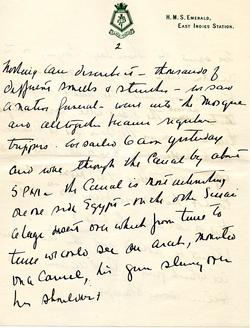 H.M.S. EMERALD,
EAST INDIES STATION.
2
Nothing can describe it - thousands of
different smells & stenches - we saw
a native funeral - went into the Mosque
and altogether became regular
trippers. We sailed 6am yesterday
and were through the Canal by about
5 P.M. the Canal is most interesting
on one side Egypt - on the other Sinai
a large desert over which from time to
time we could see an arab, mounted
on a Camel, his gun slung over
his shoulder!